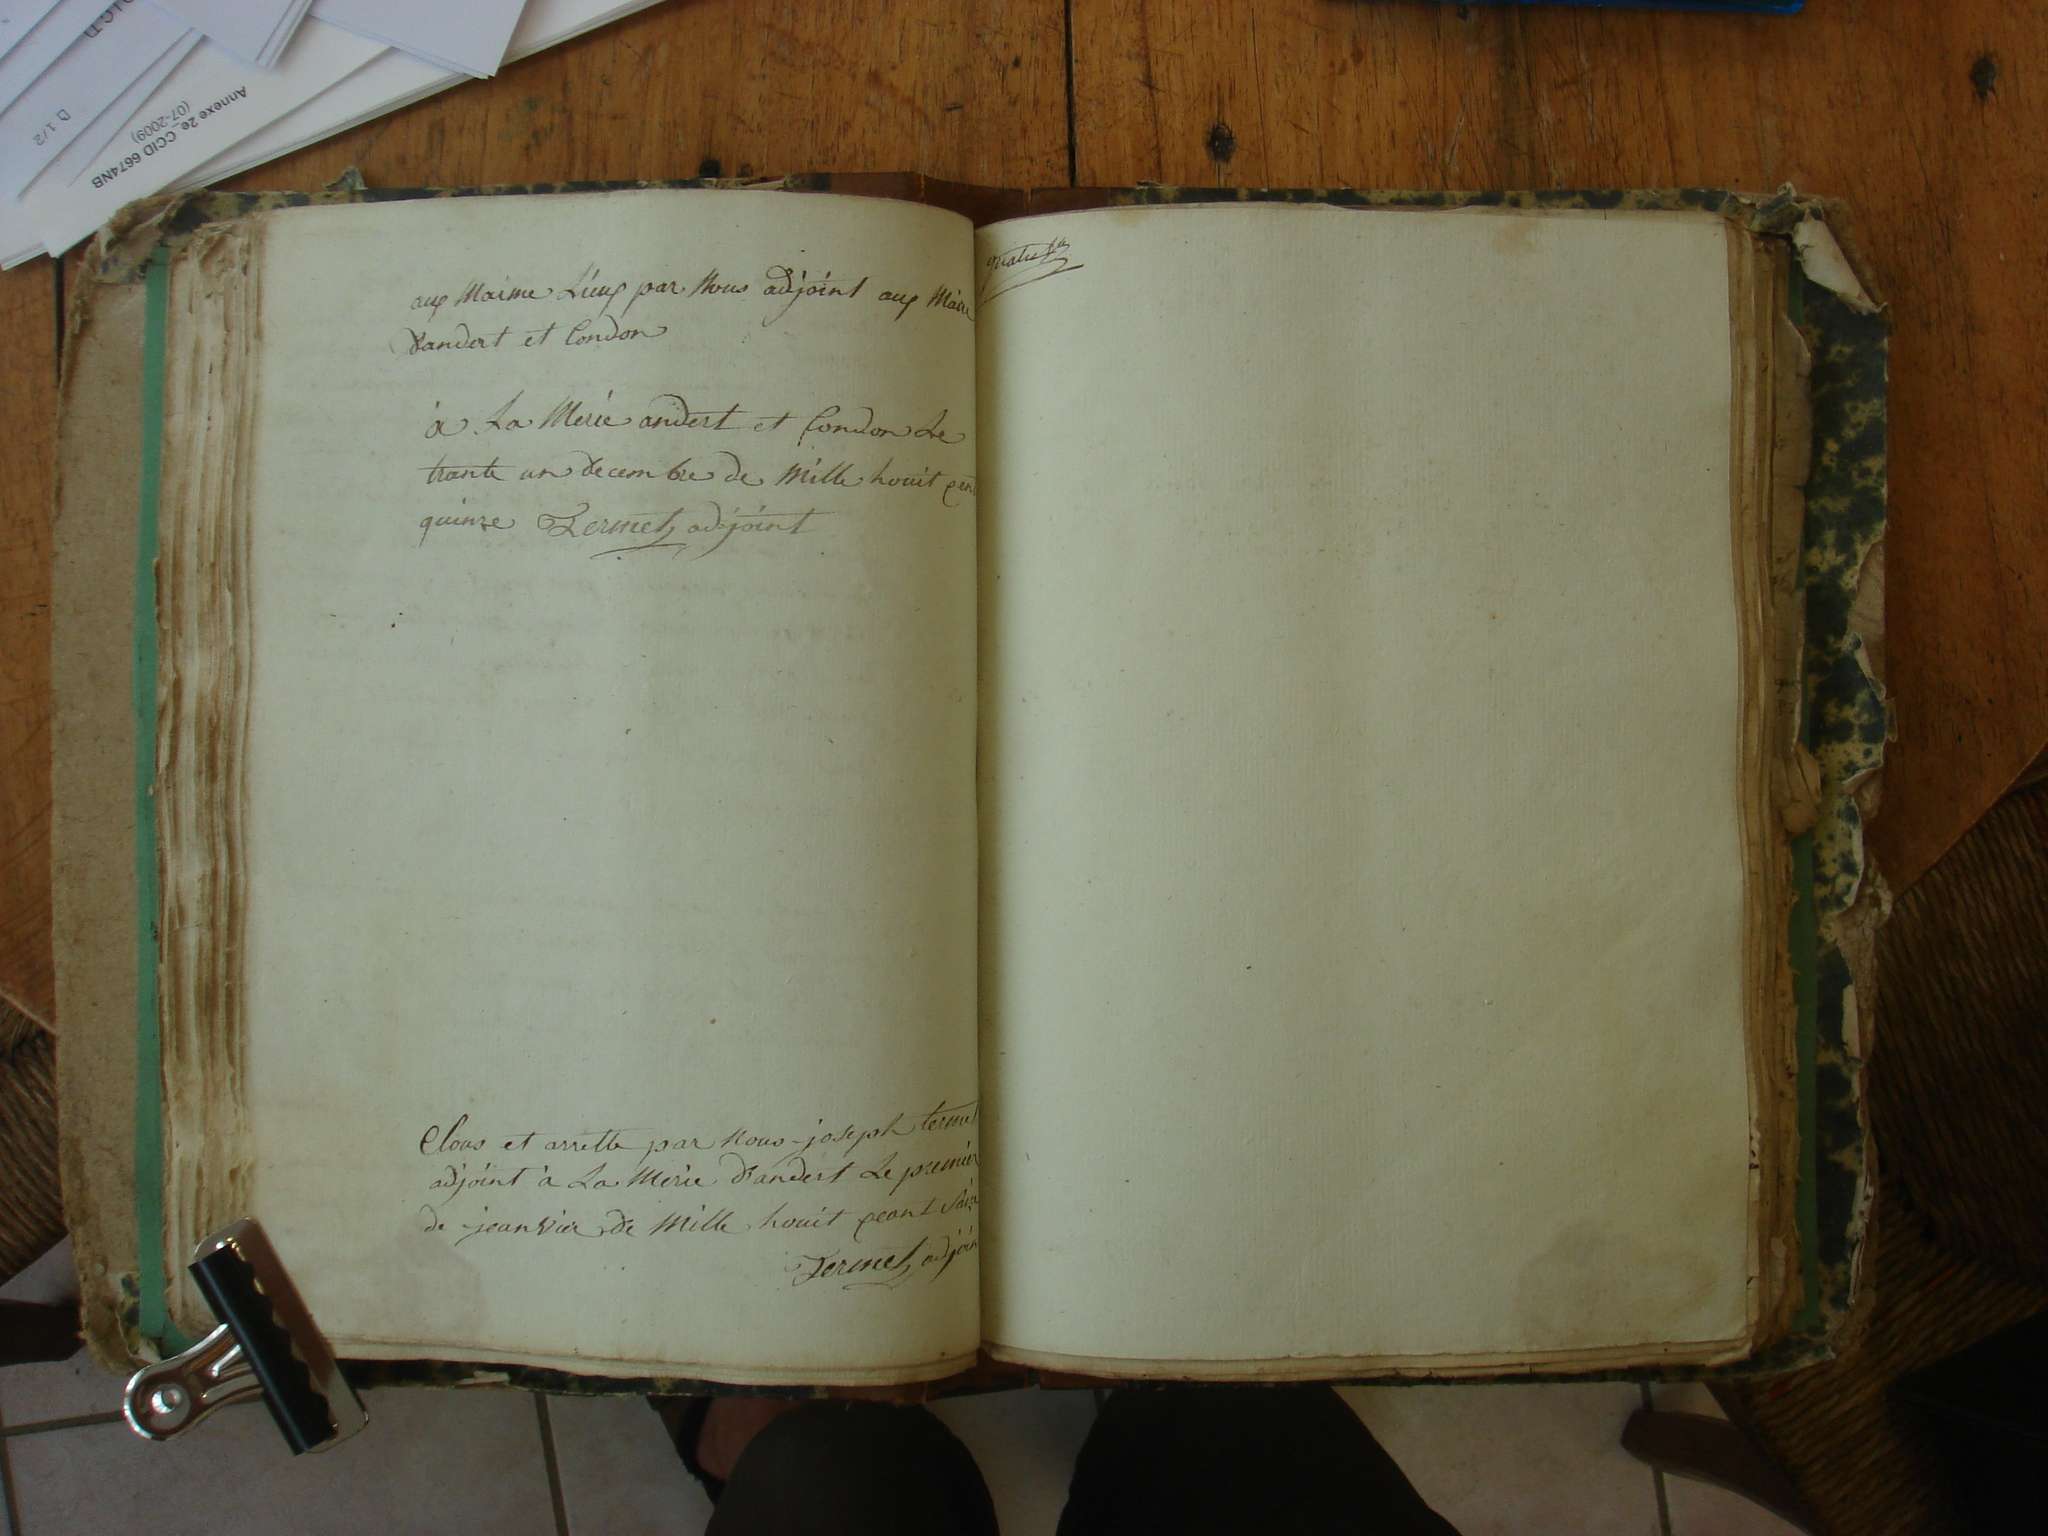 aux maime Lieux par Nous adjoint aux Maire
d'andert et Condon
à La Merie andert et Condon Le
trante un decembre de Mille houit cen
quinze Termet adjoint
Clous et arrette par Nous joseph termet
adjoint à La Merie d'andert Le premier
de jeanvier de Mille houit ceant
Termet adjoin
Annexe 2e_CCID 6674NB
(07-2009)
1/2